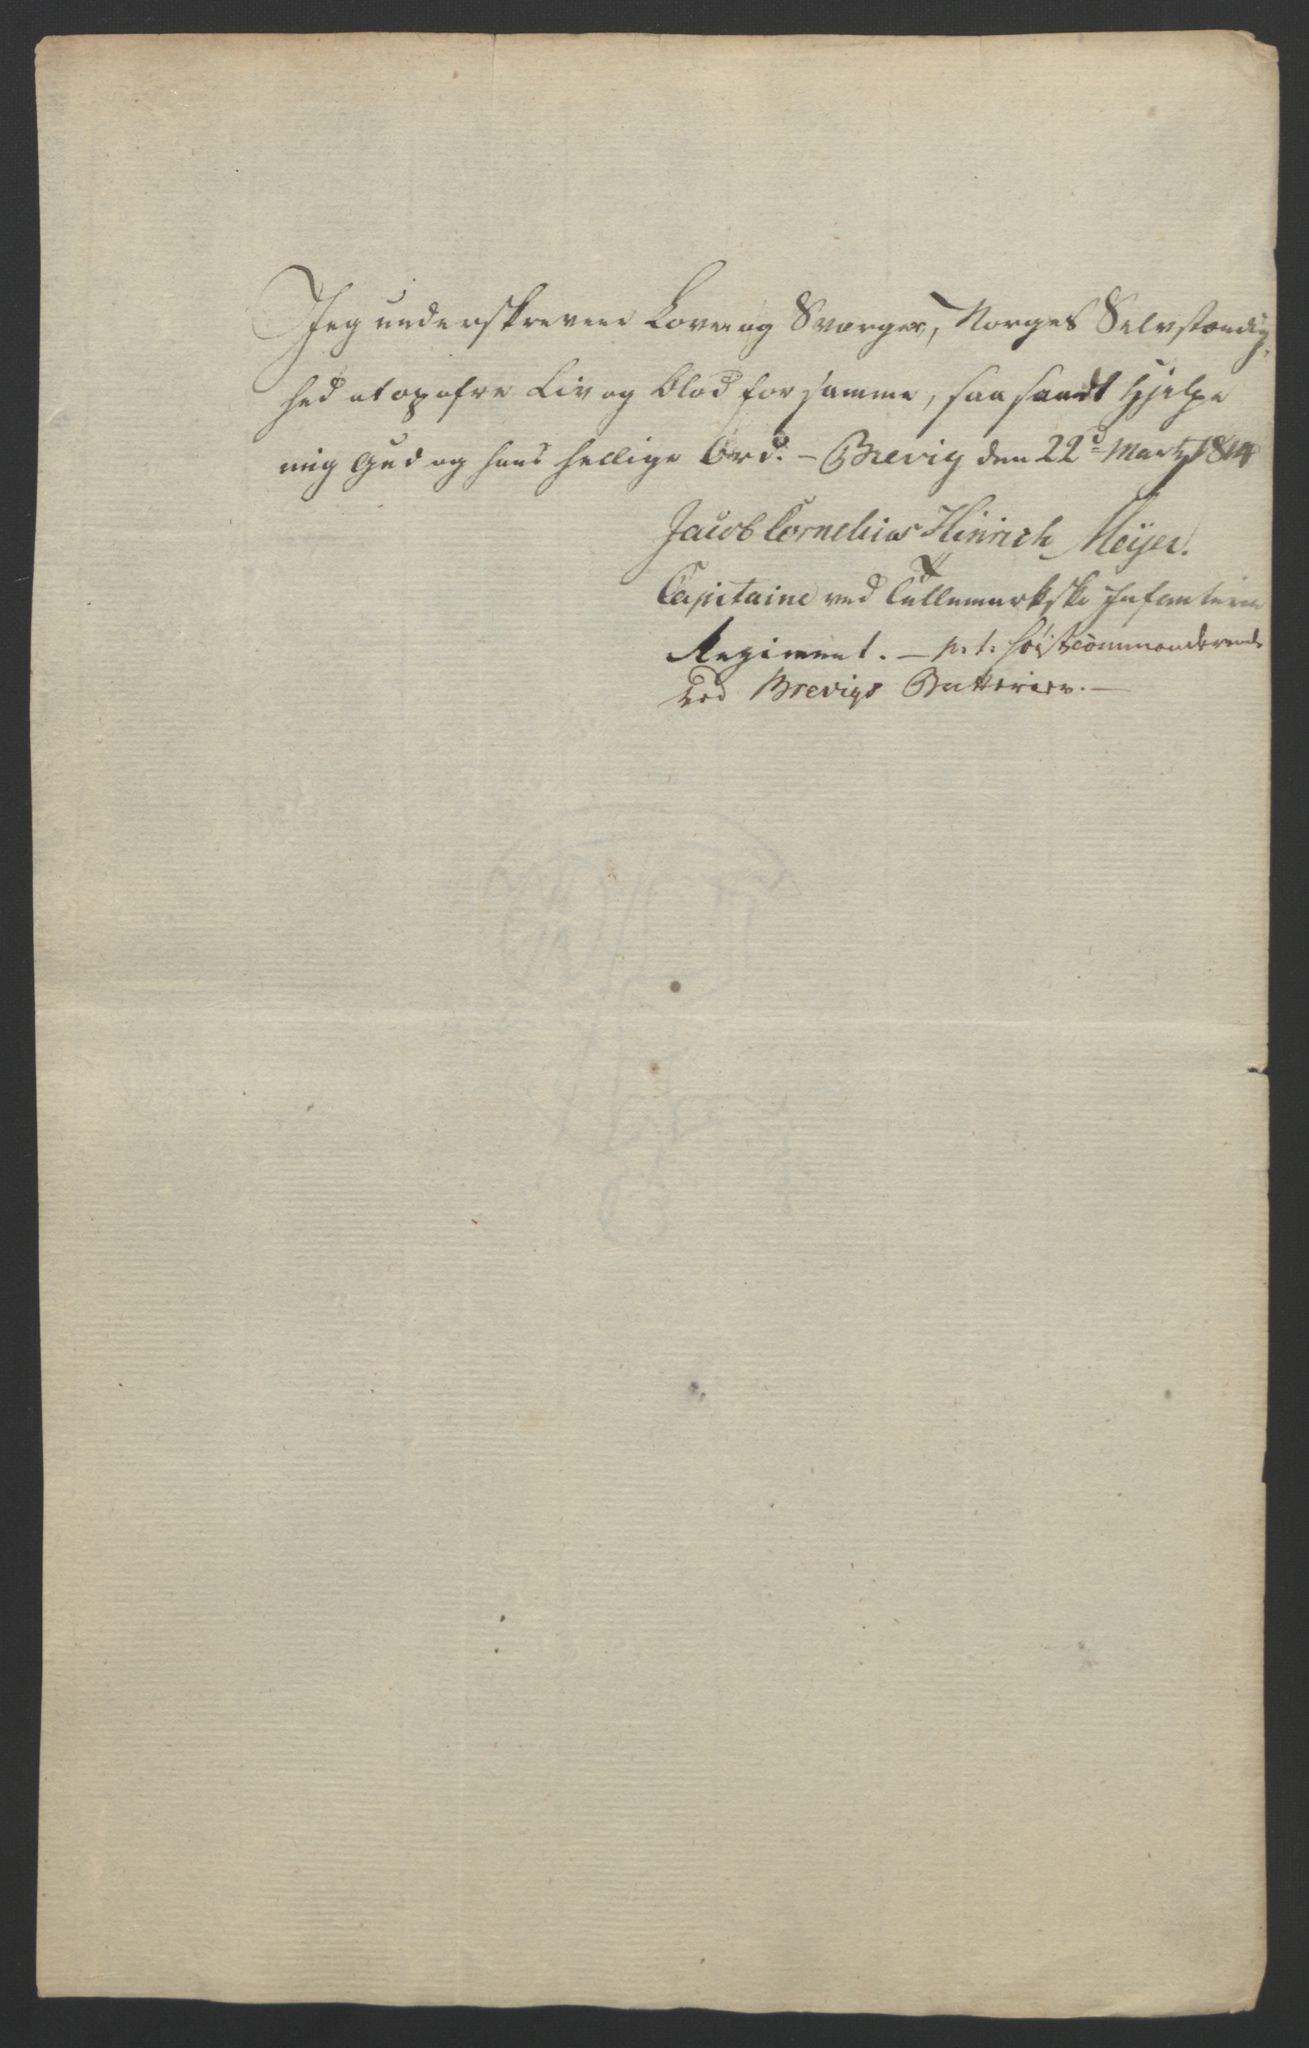 Jeg underskreven Lover og Sværger, Norges Selvstændig-
hed at opofre Liv og Blod for samme, saa sandt Hjelpe
mig Gud og hans hellige Ord. – Brevig den 22d Marty 1814
Jacob Cornelius Hinrich Meÿer.
Capitaine ved Tellemarkske Infanterie
Regiment. – p. t. høistcommanderende
ved Brevigs Batterier. –